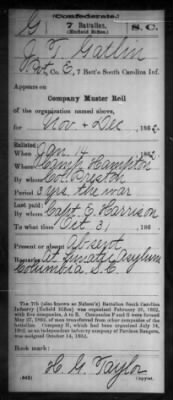 (Confederate.)
G 7 Battalion. S. C.
(Enfield Rifles)
J. T. Gatlin
Pvt, Co. E, 7 Batt'n South Carolina Inf.
Appears on
Company Muster Roll
of the organization named above,
for Nov & Dec, 1862.
Enlisted:
When Jan 14, 1862.
Where Camp Hampton
By whom Col. Preston
Period 3 yrs. the war
Last paid:
By whom Capt. E. Harrison
To what time Oct 31, 186
Present or absent Absent
Remarks: At Lunatic Asylum
Columbia S.C.
The 7th (also known as Nelson's) Battalion South Carolina
Infantry (Enfield Rifles) was organized February 22, 1862, with
five companies, A to E. Companies F and G were formed
May 27, 1862, of men transferred from other companies of the
battalion. Company H, which had been organized July 14,
1862, as an independent company of Partisan Rangers, was
assigned October 14, 1862.
Book mark:
H. G. Taylor
(642) Copyist.